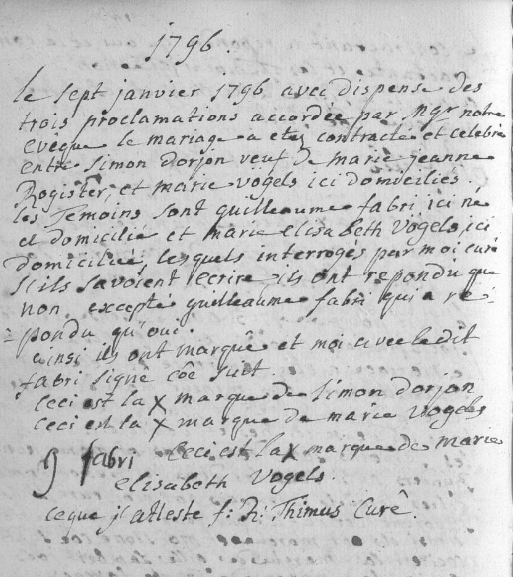 1796.
le sept janvier 1796 avec dispense des
trois proclamations accordée par Mgr notre
eveque le mariage a etez contracte et celebre
entre Simon dorjon veuf de marie jeanne
Rogister, et marie vogels ici domiciliés.
les Temoins sont guilleaume fabri ici né
et domicilié et marie elisabeth Vogels ici
domiciliée, lesquels interrogés par moi curé
s'ils savoient ecrire, ils ont repondu que
non excepté guilleaume fabri qui a re=
=pondu qu'oui.
ainsi ils ont marqué et moi avec le dit
fabri signé cõe suit.
Ceci est la X marque de Simon dorjon
ceci est la X marque de marie Vogels
g fabri Ceci est la X marque de marie
elisabeth Vogels.
ce que j'atteste f: R: Thimus Curé.